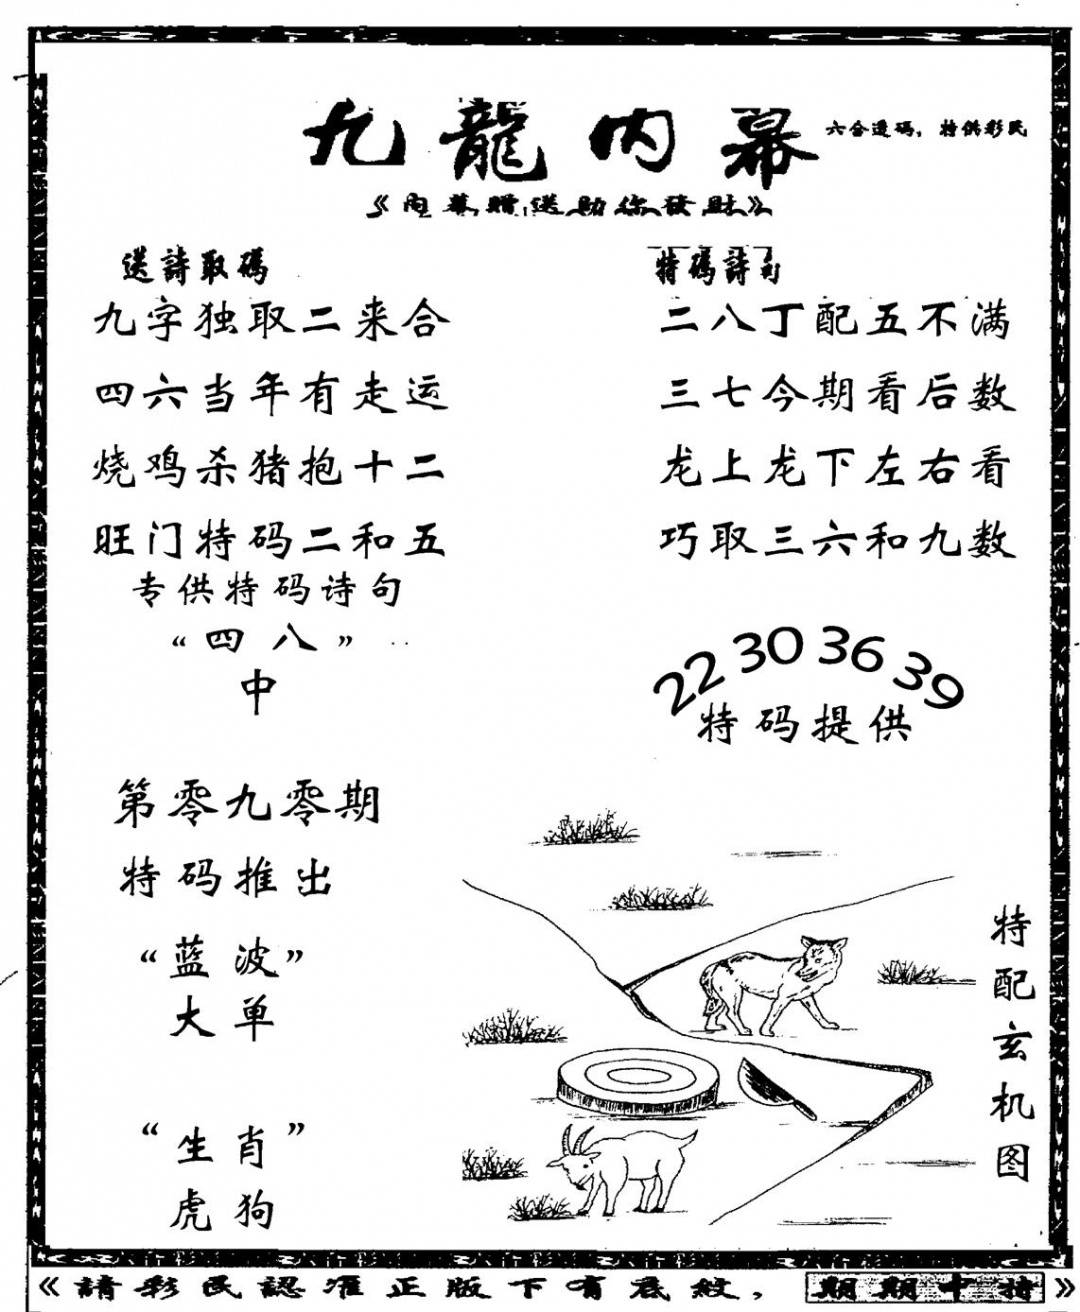 九龍内幕
六合透码，特供彩民
《内幕贈送助你發財》
送詩取碼
九字独取二来合
四六当年有走运
烧鸡杀猪抱十二
旺门特码二和五
专供特码诗句
“四八”
中
特碼詩句
二八丁配五不满
三七今期看后数
龙上龙下左右看
巧取三六和九数
22 30 36 39
特码提供
第零九零期
特码推出
“蓝波”
大单
“生肖”
虎狗
特配玄机图
《請彩民認准正版下有底紋，期期中特》